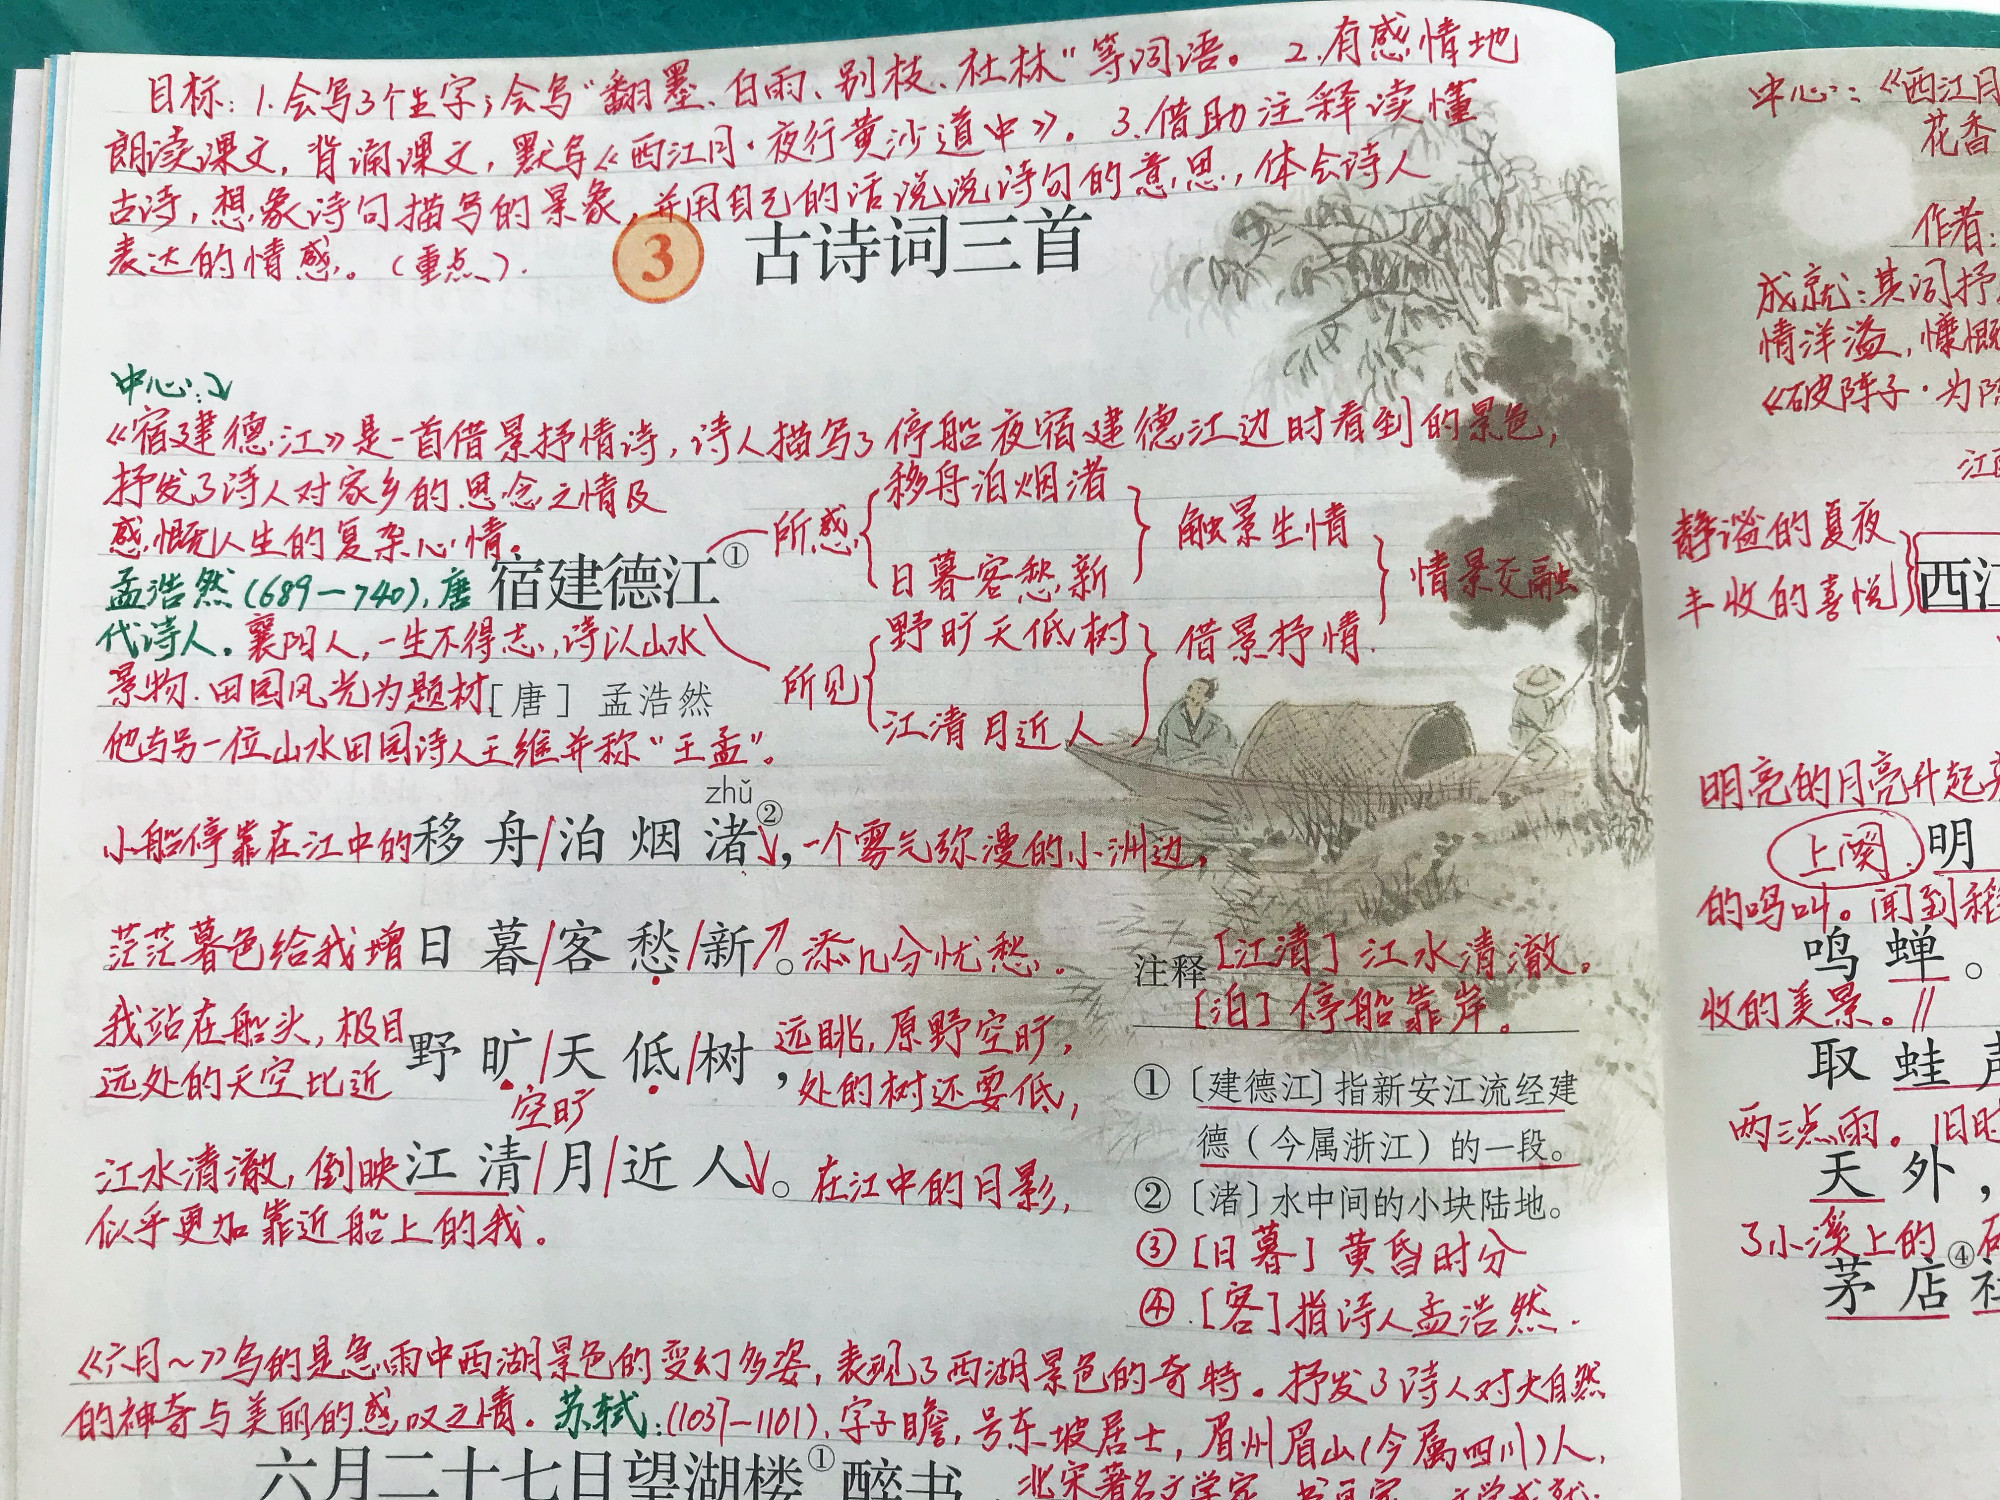 目标：1.会写3个生字；会写“翻墨、白雨、别枝、社林”等词语。 2.有感情地
朗读课文，背诵课文，默写《西江月·夜行黄沙道中》。 3.借助注释读懂
古诗，想象诗句描写的景象，并用自己的话说说诗句的意思，体会诗人
表达的情感。（重点）.
3 古诗词三首
中心：↓
《宿建德江》是一首借景抒情诗，诗人描写了停船夜宿建德江边时看到的景色，
抒发了诗人对家乡的思念之情及
感慨人生的复杂心情。
宿建德江①
所感
移舟泊烟渚
日暮客愁新
触景生情
所见
野旷天低树
江清月近人
借景抒情.
情景交融
孟浩然(689—740)，唐
代诗人。襄阳人，一生不得志，诗以山水
景物.田园风光为题材
［唐］ 孟浩然
他与另一位山水田园诗人王维并称“王孟”。
zhǔ
小船停靠在江中的移舟/泊烟渚②，一个雾气弥漫的小洲边，
茫茫暮色给我增日暮/客愁/新↗。添几分忧愁.
我站在船头，极目 远眺，原野空旷，
野旷/天低/树，
远处的天空比近 处的树还要低，
空旷
江水清澈，倒映江清/月/近人↘。在江中的月影，
似乎更加靠近船上的我。
注释［江清］江水清澈。
［泊］停船靠岸。
①［建德江］指新安江流经建
德（今属浙江）的一段。
②［渚］水中间的小块陆地。
③［日暮］黄昏时分
④.［客］指诗人孟浩然.
《六月～》写的是急雨中西湖景色的变幻多姿，表现了西湖景色的奇特。抒发了诗人对大自然
的神奇与美丽的感叹之情。苏轼：(1037—1101)，字子瞻，号东坡居士，眉州眉山(今属四川)人，
六月二十七日望湖楼①醉书
北宋著名文学家
中心：《西江月
花香
作者：
成就：其词抒
情洋溢，慷慨
《破阵子·为
静谧的夏夜
丰收的喜悦
西江
明亮的月亮升起
上阕.明
的鸣叫。闻到稻
鸣蝉。
收的美景。//
取蛙声
两三点雨。旧时
天外，
了小溪上的
茅店④社